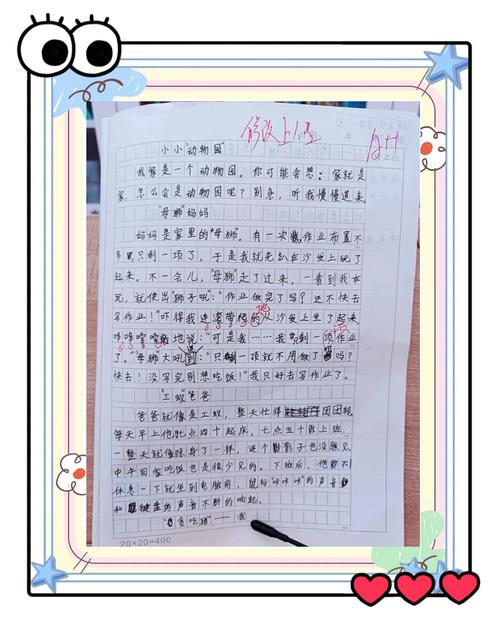 修改上传
A++
小小"动物园"
我家是一个动物园。你可能会想：家就是
家，怎么会是动物园呢？别急，听我慢慢道来
"母狮"妈妈
妈妈是家里的"母狮"。有一次作业布置不
只剩一项了，于是我就先趴在沙发上玩了
起来。不一会儿，"母狮"走了过来，一看到我在
玩，就使出"狮子吼"："作业做完了吗？还不快去
写作业！"吓得我连滚带爬的从沙发上坐了起来，
地说："可是我……我只剩一项作业
了。""母狮"大吼道："只剩一项就不用做了吗？
快去！没写完别想吃饭！"我只好去写作业了。
"工蚁"爸爸
爸爸就像是工蚁，整天忙得团团转
每天早上他七点四十起床，七点五十去上班，
一整天就像隐身了一样，连个影子也没见，
中午回家吃饭也是很少见的。下班后，他都不
休息一下就坐到电脑前，鼠标"咔咔咔"的声音
和键盘的声音不断的响起。
"贪吃猪"——我
20×20=400